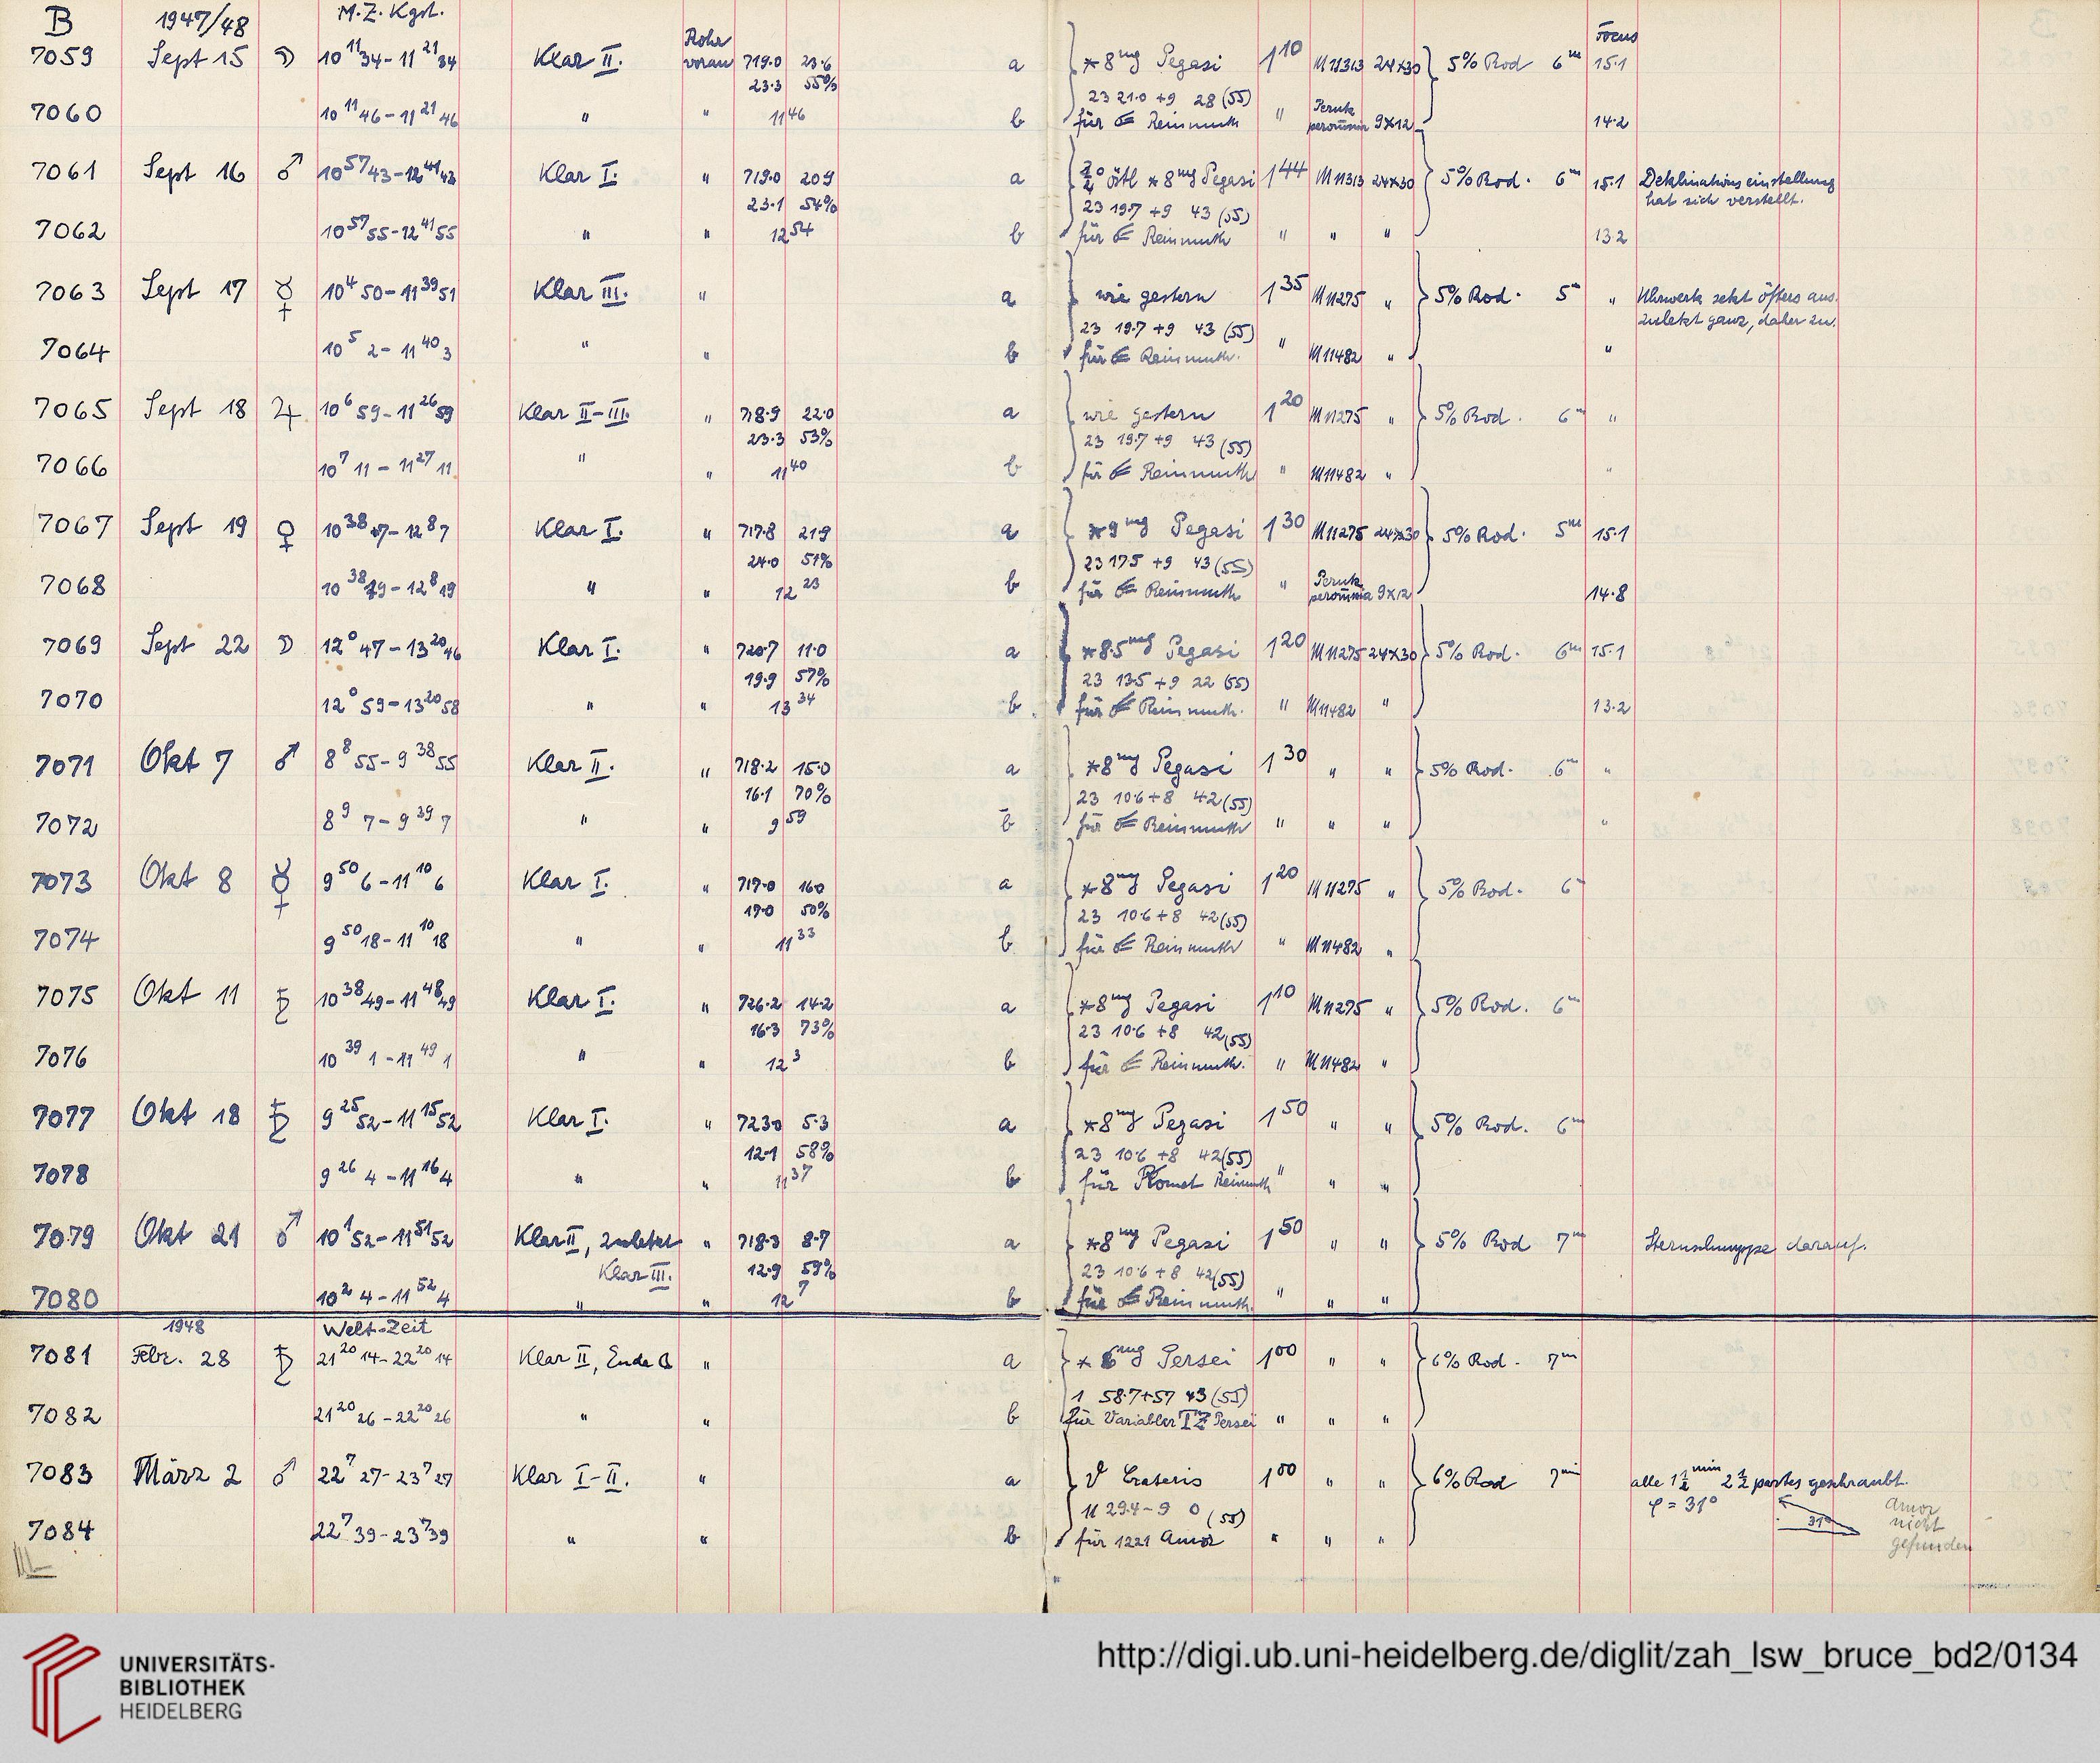 B 1947/48 M.Z. Kgst. Rohr Focus
7059 Sept 15 ☽ 10 11 34 - 11 21 34 Klar II. voran 719.0 23.6 a *8mg Pegasi 1 10 M11313 24×30 5% Rod 6m 15.1
23.3 55% 23 21.0 +9 28 (55)
7060 10 11 46 - 11 21 46 " " 11 46 b für Reinmuth " Perutz peromnia 9×12 14.2
7061 Sept 16 ♂ 10 57 43 - 12 41 43 Klar I. " 719.0 20.9 a östl *8mg Pegasi 1 44 M11313 24×30 5% Rod. 6m 15.1 Deklinationseinstellung
23.1 54% 23 19.7 +9 43 (55) hat sich verstellt.
7062 10 57 55 - 12 41 55 " " 12 54 b für Reinmuth " " " 13.2
7063 Sept 17 ☿ 10 4 50 - 11 39 51 Klar III. " a wie gestern 1 35 M11275 " 5% Rod. 5m " Uhrwerk setzt öfters aus.
23 19.7 +9 43 (55) zuletzt ganz, daher zu.
7064 10 5 2 - 11 40 3 " " b für Reinmuth. " M11482 " "
7065 Sept 18 ♃ 10 6 59 - 11 26 59 Klar II-III. " 718.9 22.0 a wie gestern 1 20 M11275 " 5% Rod. 6m "
23.3 53% 23 19.7 +9 43 (55)
7066 10 7 11 - 11 27 11 " " 11 40 b für Reinmuth " M11482 " "
7067 Sept 19 ♀ 10 38 7 - 12 8 7 Klar I. " 717.8 21.9 a *9mg Pegasi 1 30 M11275 24×30 5% Rod. 5m 15.1
24.0 51% 23 17.5 +9 43 (55)
7068 10 38 19 - 12 8 19 " " 12 23 b für Reinmuth " Perutz peromnia 9×12 14.8
7069 Sept 22 ☽ 12 0 47 - 13 20 46 Klar I. " 720.7 11.0 a *8.5mg Pegasi 1 20 M11275 24×30 5% Rod. 6m 15.1
19.9 57% 23 13.5 +9 22 (55)
7070 12 0 59 - 13 20 58 " " 13 34 b für Reinmuth. " M11482 " 13.2
7071 Okt 7 ♂ 8 8 55 - 9 38 55 Klar II. " 718.2 15.0 a *8mg Pegasi 1 30 " " 5% Rod. 6m "
16.1 70% 23 10.6 +8 42 (55)
7072 8 9 7 - 9 39 7 " " 9 59 b für Reinmuth " " " "
7073 Okt 8 ☿ 9 50 6 - 11 10 6 Klar I. " 717.0 16.0 a *8mg Pegasi 1 20 M11275 " 5% Rod. 6m
17.0 50% 23 10.6 +8 42 (55)
7074 9 50 18 - 11 10 18 " " 11 33 b für Reinmuth " M11482 "
7075 Okt 11 ♄ 10 38 49 - 11 48 49 Klar I. " 726.2 14.2 a *8mg Pegasi 1 10 M11275 " 5% Rod. 6m
16.3 73% 23 10.6 +8 42 (55)
7076 10 39 1 - 11 49 1 " " 12 3 b für Reinmuth. " M11482 "
7077 Okt 18 ♄ 9 25 52 - 11 15 52 Klar I. " 723.0 5.3 a *8mg Pegasi 1 50 " " 5% Rod. 6m
12.1 58% 23 10.6 +8 42 (55)
7078 9 26 4 - 11 16 4 " " 11 37 b für Komet Reinmuth " " "
7079 Okt 21 ♂ 10 1 52 - 11 51 52 Klar II, zuletzt " 718.3 8.7 a *8mg Pegasi 1 50 " " 5% Rod 7m Sternschnuppe darauf.
Klar III. 12.9 59% 23 10.6 +8 42 (55)
7080 10 2 4 - 11 52 4 " " 12 7 b für Reinmuth. " " "
1948 Welt-Zeit
7081 Febr. 28 ♄ 21 20 14 - 22 20 14 Klar II, Ende " a *6mg Persei 1 00 " " 6% Rod. 7m
1 58.7 +57 43 (55)
7082 21 20 26 - 22 20 26 " " b für Variabler TZ Persei " " "
7083 März 2 ♂ 22 7 27 - 23 7 27 Klar I-II. " a Crateris 1 00 " " 6% Rod 7min alle 1½min 2½ partes geschraubt.
11 29.4 -9 0 (55) φ = 31° 31° Amor
7084 22 7 39 - 23 7 39 " " b für 1221 Amor " " " nicht
gefunden
UNIVERSITÄTS-
BIBLIOTHEK
HEIDELBERG
http://digi.ub.uni-heidelberg.de/diglit/zah_lsw_bruce_bd2/0134